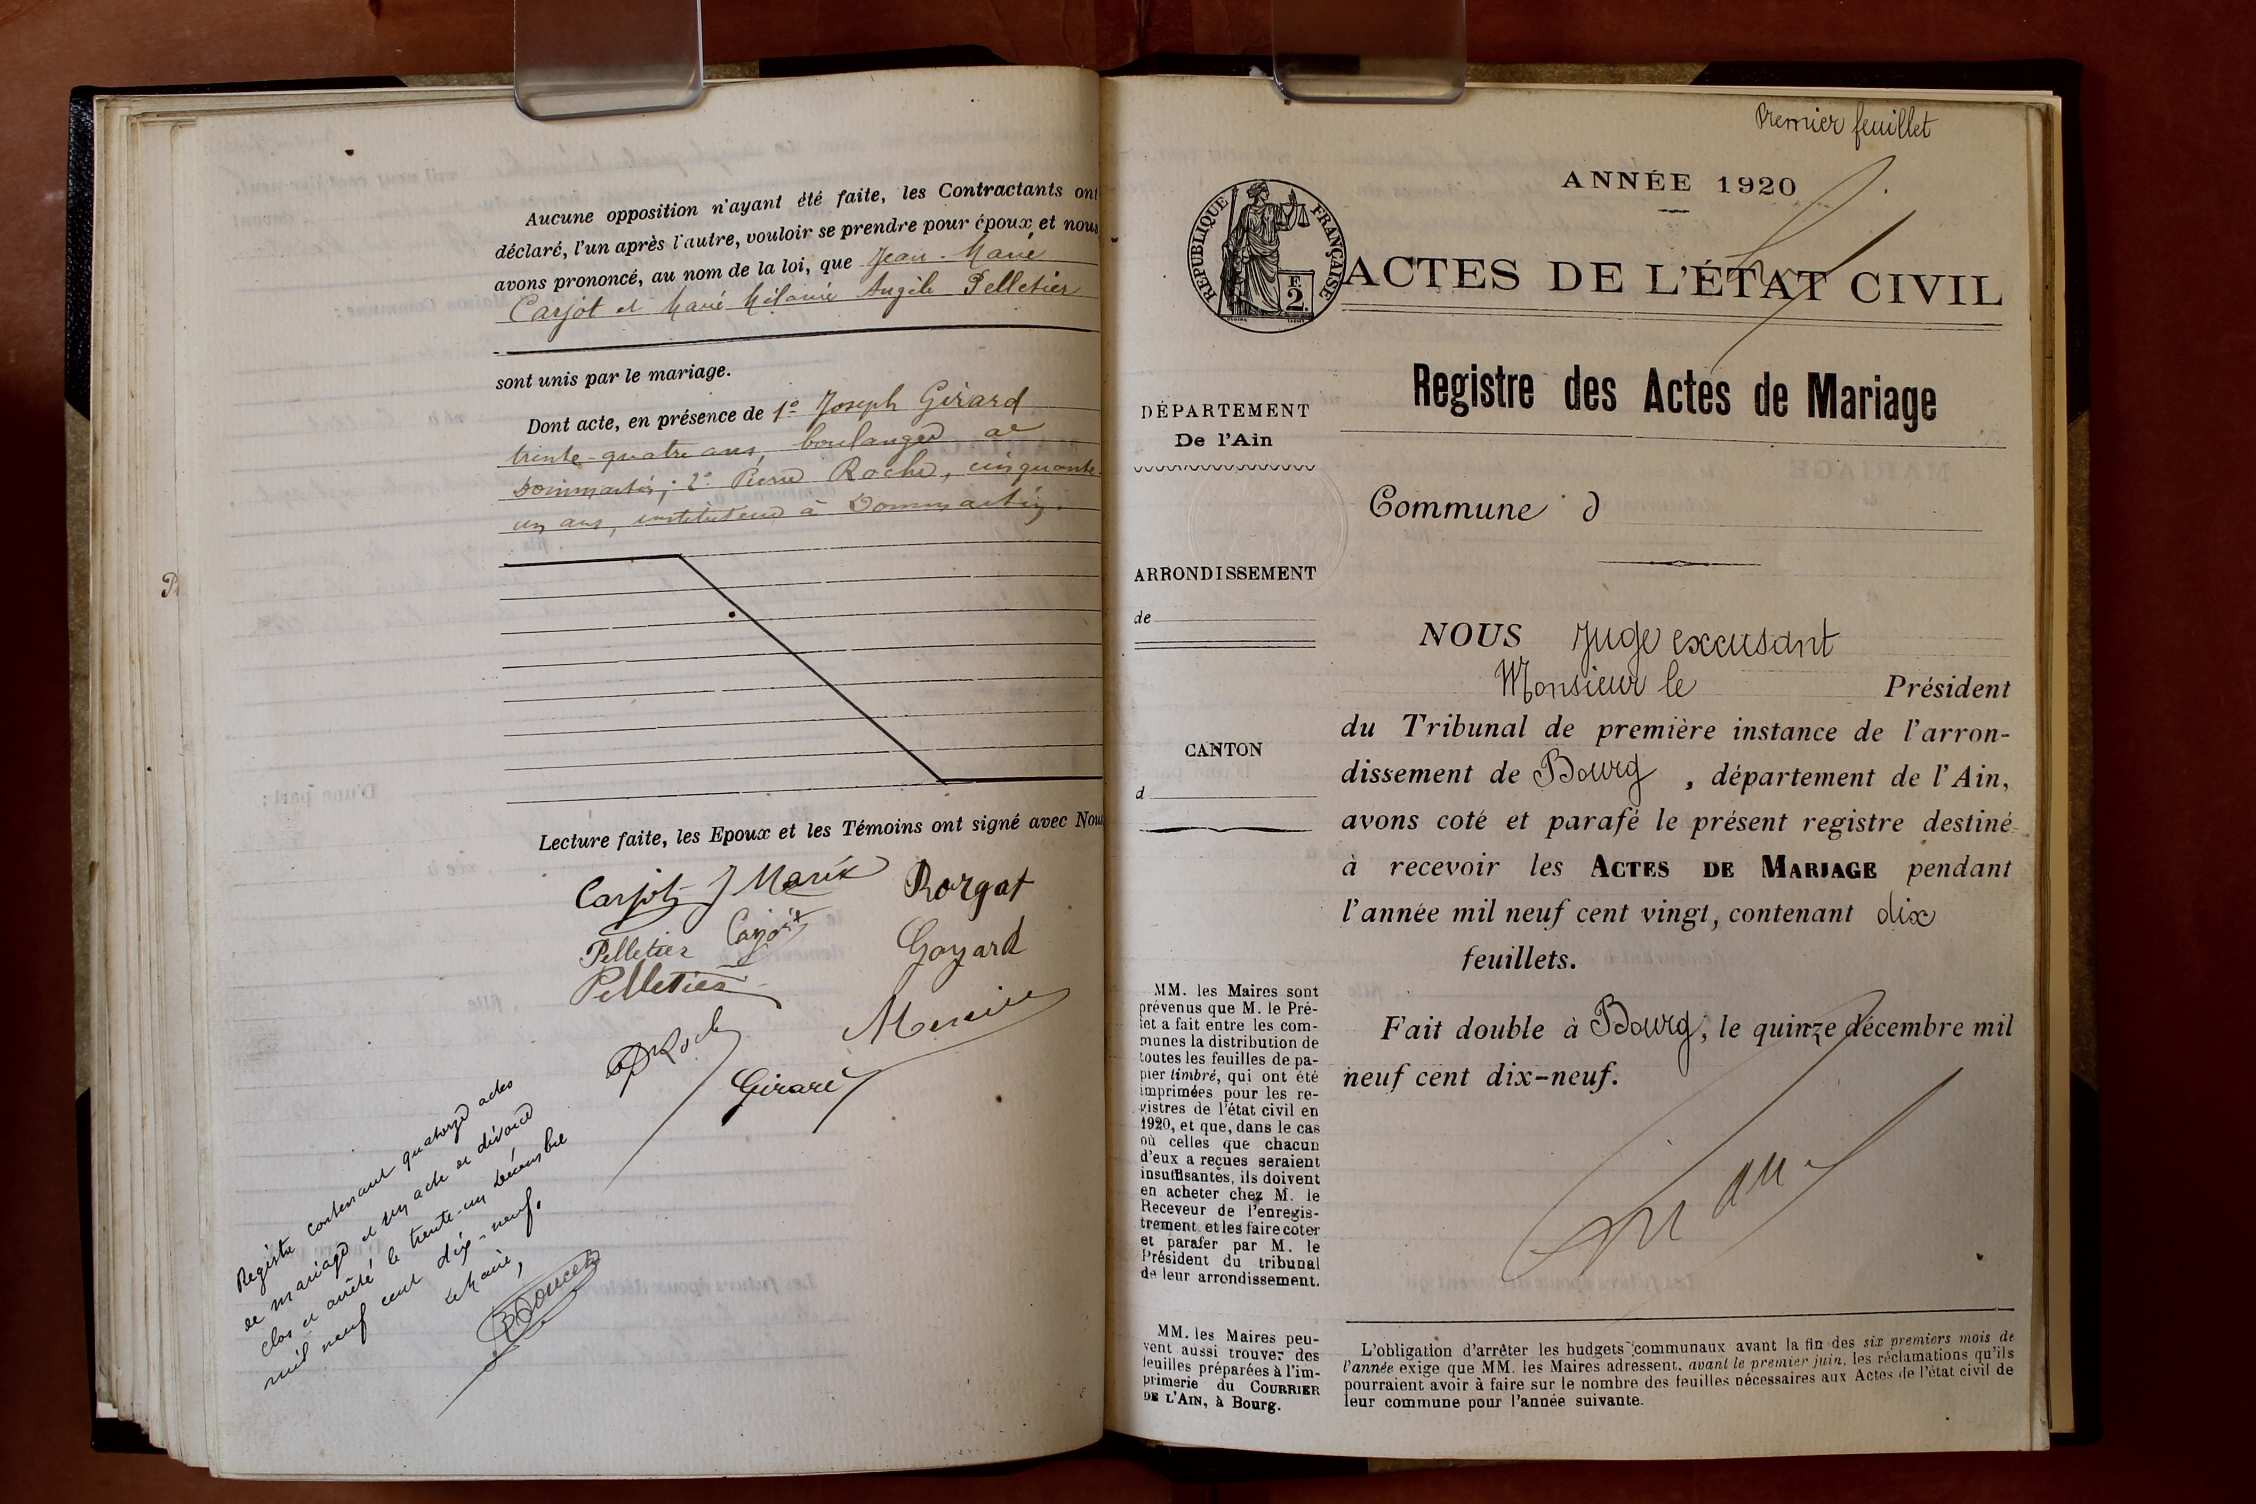 Aucune opposition n'ayant été faite, les Contractants ont
déclaré, l'un après l'autre, vouloir se prendre pour époux, et nous
avons prononcé, au nom de la loi, que Jean-Marie
Carjot et Marie Mélanie Angèle Pelletier
sont unis par le mariage.
Dont acte, en présence de 1° Joseph Girard
trente-quatre ans, boulanger de
Dommartin; 2° Pierre Roche, cinquante-
un ans, instituteur à Dommartin.
Lecture faite, les Epoux et les Témoins ont signé avec Nous
Carjot J Marie Rorgat
Pelletier Carjot Goyard
Pelletier
Mercier
Roche
Girard
Registre contenant quatorze actes
de mariage et un acte de divorce
clos et arrêté le trente-un décembre
mil neuf cent dix-neuf.
Le Maire,
Premier feuillet
ANNÉE 1920
RÉPUBLIQUE FRANÇAISE
F.
2.
ACTES DE L'ÉTAT CIVIL
Registre des Actes de Mariage
DÉPARTEMENT
De l'Ain
Commune d
ARRONDISSEMENT
de
CANTON
d
NOUS Juge excusant
Monsieur le Président
du Tribunal de première instance de l'arron-
dissement de Bourg, département de l'Ain,
avons coté et parafé le présent registre destiné
à recevoir les ACTES DE MARIAGE pendant
l'année mil neuf cent vingt, contenant dix
feuillets.
Fait double à Bourg, le quinze décembre mil
neuf cent dix-neuf.
MM. les Maires sont
prévenus que M. le Pré-
fet a fait entre les com-
munes la distribution de
toutes les feuilles de pa-
pier timbré, qui ont été
imprimées pour les re-
gistres de l'état civil en
1920, et que, dans le cas
où celles que chacun
d'eux a reçues seraient
insuffisantes, ils doivent
en acheter chez M. le
Receveur de l'enregis-
trement et les faire coter
et parafer par M. le
Président du tribunal
de leur arrondissement.
MM. les Maires peu-
vent aussi trouver des
feuilles préparées à l'im-
primerie du COURRIER
DE L'AIN, à Bourg.
L'obligation d'arrêter les budgets communaux avant la fin des six premiers mois de
l'année exige que MM. les Maires adressent, avant le premier juin, les réclamations qu'ils
pourraient avoir à faire sur le nombre des feuilles nécessaires aux Actes de l'état civil de
leur commune pour l'année suivante.